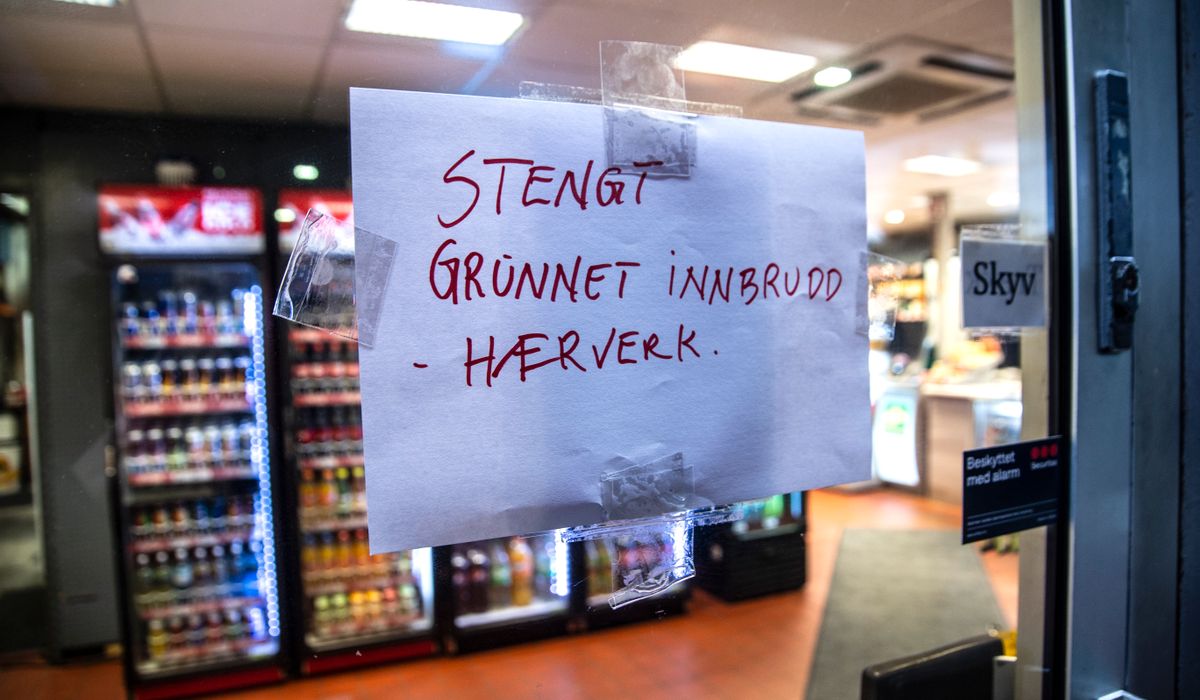 STENGT
GRÜNNET iNNBRUDD
- HÆRVERK.
Skyv
Beskyttet
med alarm
Securitas